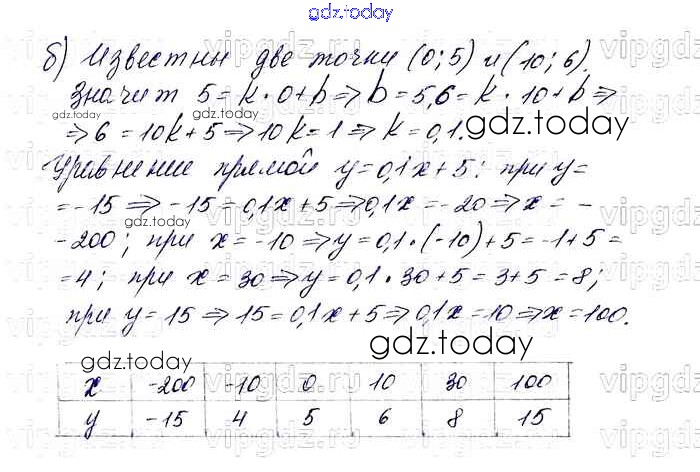 gdz.today
б) Известны две точки (0; 5) и (10; 6).
Значит 5 = k · 0 + b ⇒ b = 5, 6 = k · 10 + b ⇒
⇒ 6 = 10k + 5 ⇒ 10k = 1 ⇒ k = 0,1.
Уравнение прямой y = 0,1x + 5; при y =
= -15 ⇒ -15 = 0,1x + 5 ⇒ 0,1x = -20 ⇒ x = -
-200; при x = -10 ⇒ y = 0,1 · (-10) + 5 = -1 + 5 =
= 4; при x = 30 ⇒ y = 0,1 · 30 + 5 = 3 + 5 = 8;
при y = 15 ⇒ 15 = 0,1x + 5 ⇒ 0,1x = 10 ⇒ x = 100.
x -200 -10 0 10 30 100
y -15 4 5 6 8 15
gdz.today
gdz.today
gdz.today
gdz.today
gdz.today
gdz.today
gdz.today